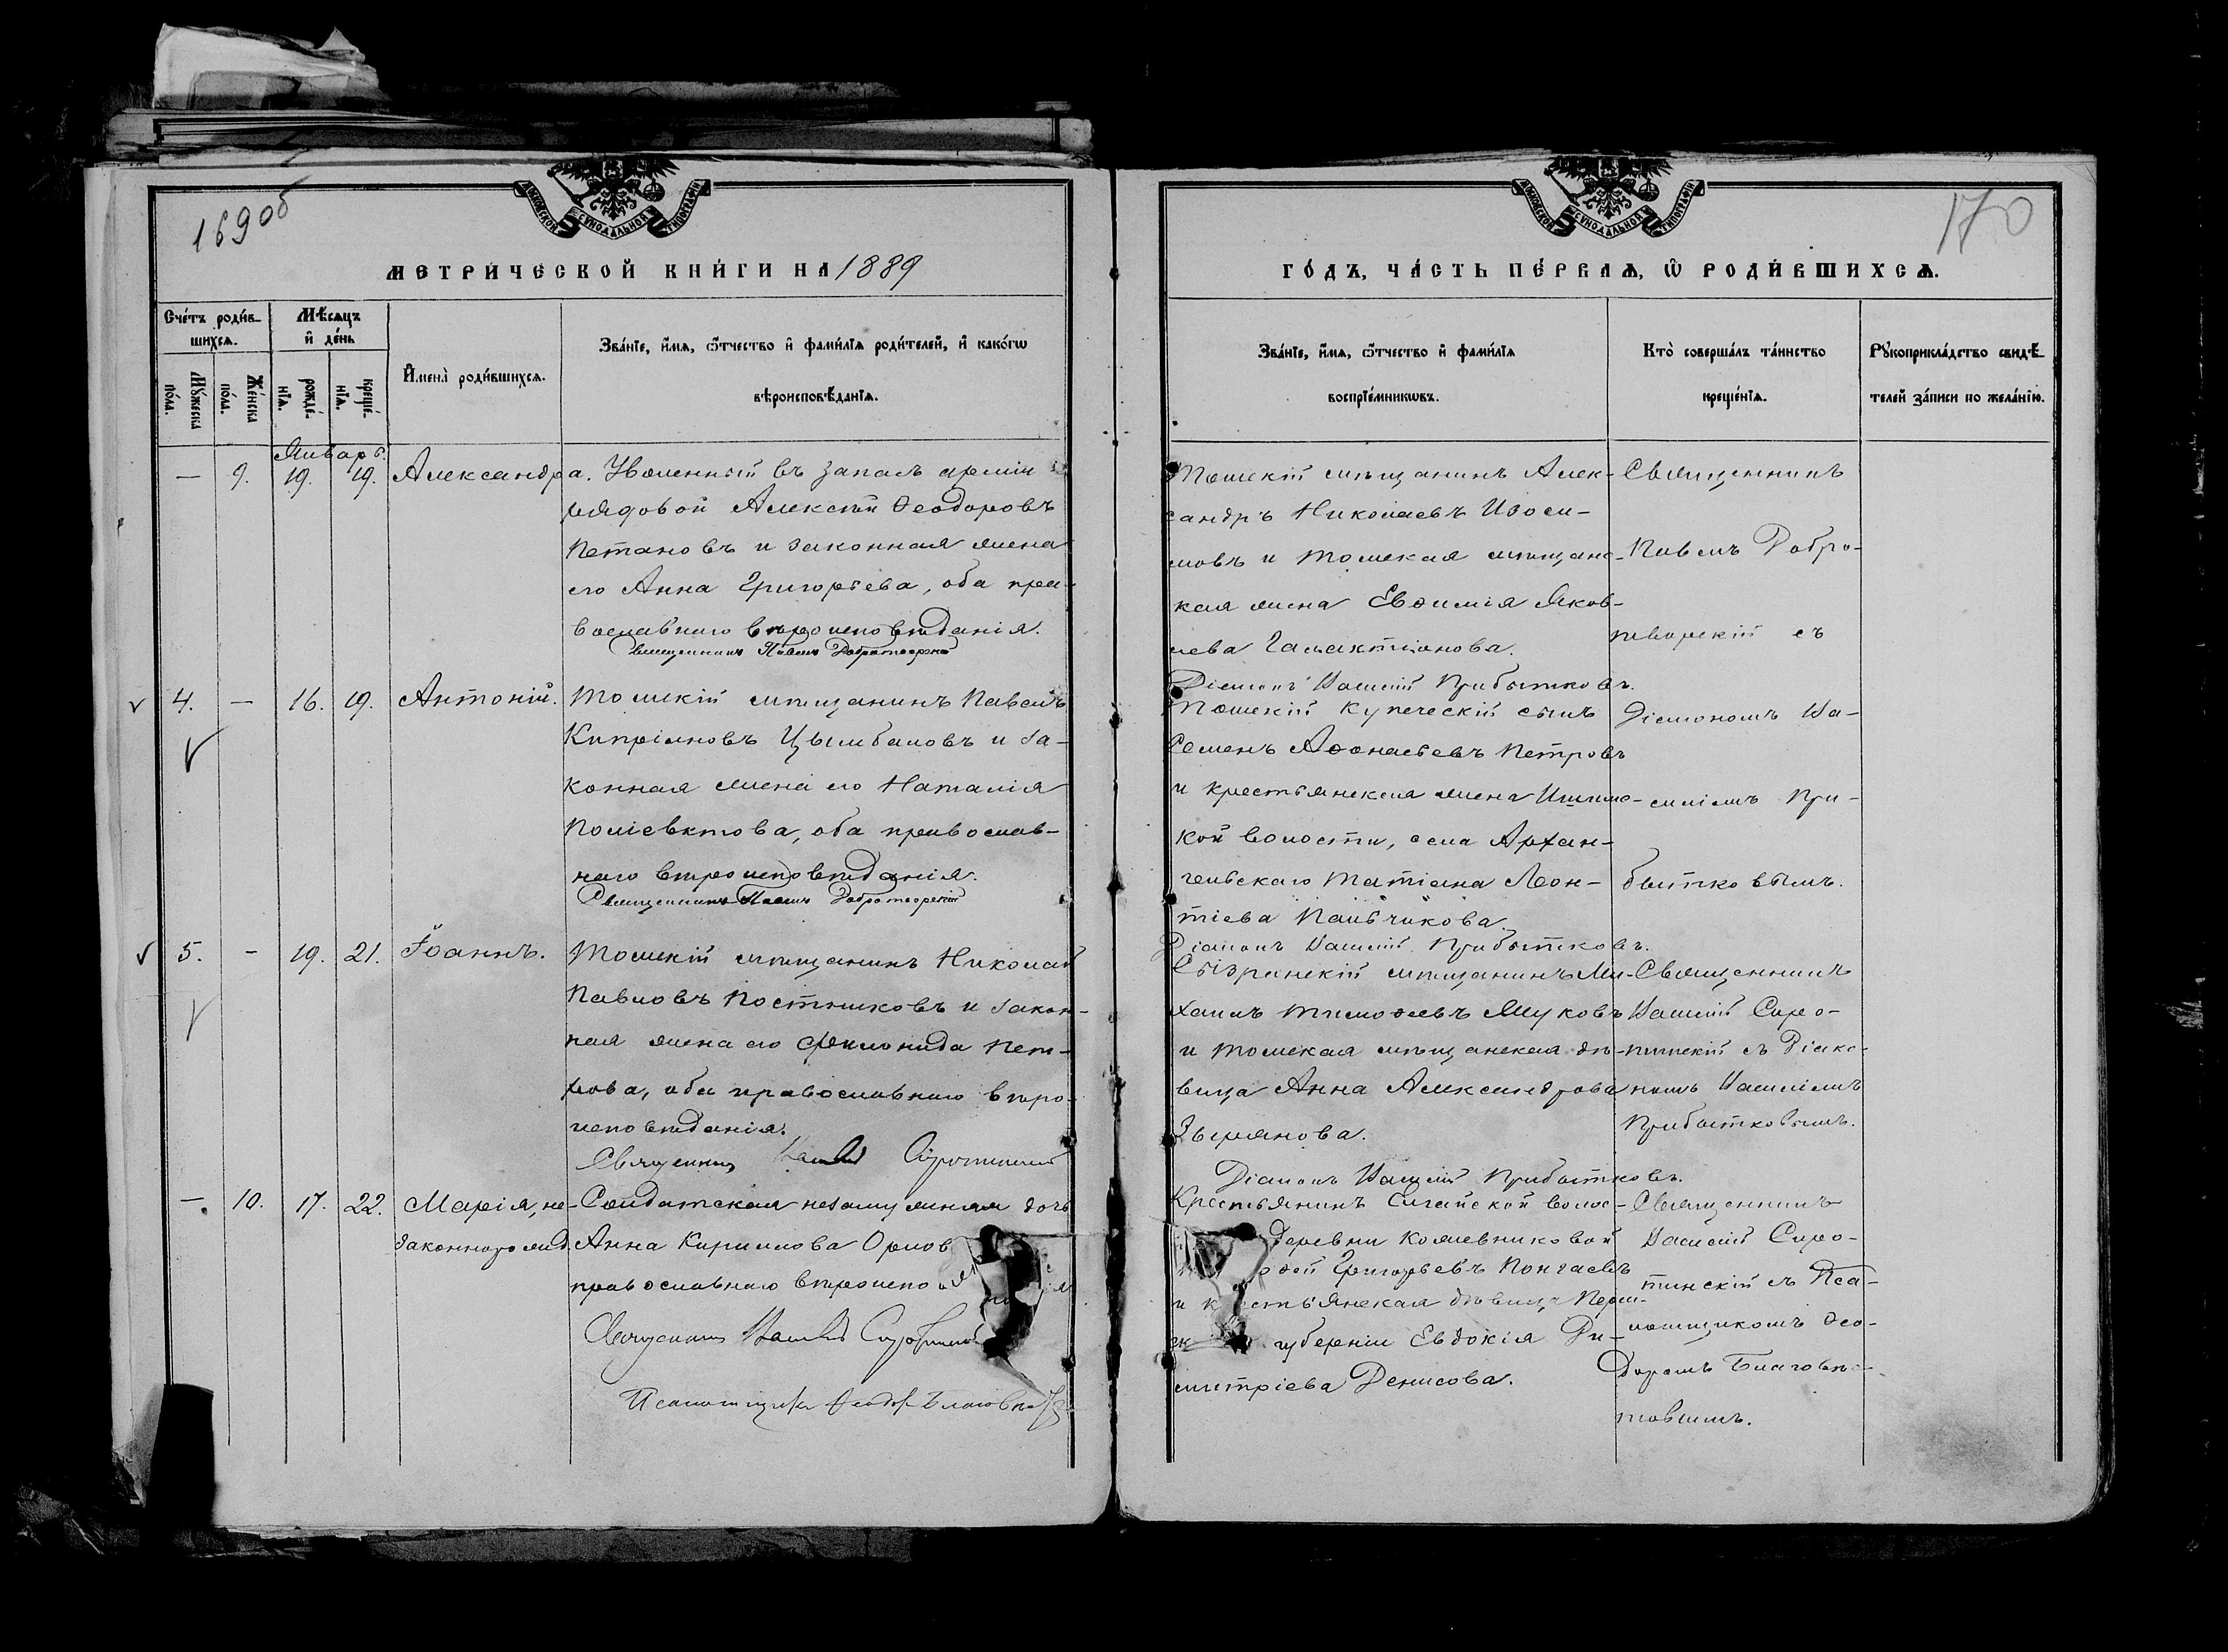 169об
МОСКОВСКОЙ СѴНОДАЛЬНОЙ ТИПОГРАФІИ
МЕТРИ́ЧЕСКОЙ КНИ́ГИ НА 1889
Сче́тъ роди́в-
шихсѧ.
Мѣ́сѧцъ
и҆ де́нь
Мꙋ́жеска
по́ла.
Же́нска
по́ла.
рожде́-
нїѧ.
креще́-
нїѧ.
И҆мена̀ роди́вшихсѧ.
Зва́нїе, и҆́мѧ, ѻ҆́тчество и҆ фами́лїѧ роди́телей, и҆ како́гѡ
вѣроисповѣ́данїѧ.
Январь.
— 9. 19. 19. Александра. Уволенный въ запасъ арміи
рядовой Алексѣй Ѳеодоровъ
и законная жена
его Анна Григорьева, оба пра-
вославнаго вѣроисповѣданія.
Священникъ Павелъ Добротворскій
4. — 16. 19. Антоній. Томскій мѣщанинъ Павелъ
Кипріановъ Цымбаловъ и за-
конная жена его Наталія
Поліевктова, оба православ-
наго вѣроисповѣданія.
Священникъ Павелъ Добротворскій
5. - 19. 21. Іоаннъ. Томскій мѣщанинъ Николай
Павловъ Постниковъ и закон-
ная жена его Филонида Пет-
рова, оба православнаго вѣро-
исповѣданія.
Священникъ Василій Сиротинскій
—. 10. 17. 22. Марія, не- Солдатская незамужняя дочь
законнорожд. Анна Кириллова Орлов
православнаго вѣроиспо
Священникъ Василій Сиротинскій
Псаломщикъ Ѳеодоръ
170
МОСКОВСКОЙ СѴНОДАЛЬНОЙ ТИПОГРАФІИ
ГО́ДЪ, ЧА́СТЬ ПЕ́РВАѦ, Ѡ҆ РОДИ́ВШИХСѦ.
Зва́нїе, и҆́мѧ, ѻ҆́тчество и҆ фами́лїѧ
воспрїе́мникѡвъ.
Кто̀ соверша́лъ та́инство
креще́нїѧ.
Рꙋкоприкла́дство свидѣ́-
телей за́писи по жела́нїю.
Томскій мѣщанинъ Алек-
сандръ Николаевъ Изоси-
мовъ и томская мѣщанс-
кая жена Евѳимія Яков-
лева Галактіонова.
Діаконъ Василій Прибытковъ.
Священникъ
Павелъ Добро-
творскій съ
Діакономъ Ва-
силіемъ При-
бытковымъ.
Томскій купеческій сынъ
Семенъ Аѳонасьевъ Петровъ
и крестьянская жена Ишимс-
кой волости, села Архан-
гельскаго Татіана Леон-
тіева Пальчикова.
Діаконъ Василій Прибытковъ.
Сызранскій мѣщанинъ Ми-
хаилъ Тимоѳеевъ Жуковъ
и томская мѣщанская дѣ-
вица Анна Александрова
Зверянова.
Діаконъ Василій Прибытковъ.
Священникъ
Василій Сиро-
тинскій съ Діако-
номъ Василіемъ
Прибытковымъ.
Крестьянинъ волос-
деревни Кожевниковой
Григорьевъ Понгаевъ
и крестьянская дѣвица Перм-
губерніи Евдокія Ди-
митріева Денисова.
Священникъ
Василій Сиро-
тинскій съ Пса-
ломщикомъ Ѳео-
доромъ Благовѣс-
товымъ.